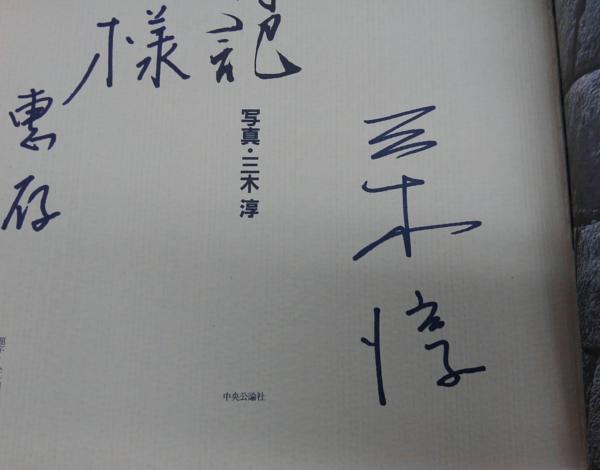 三木淳
記
写真・三木 淳
中央公論社
様
惠存